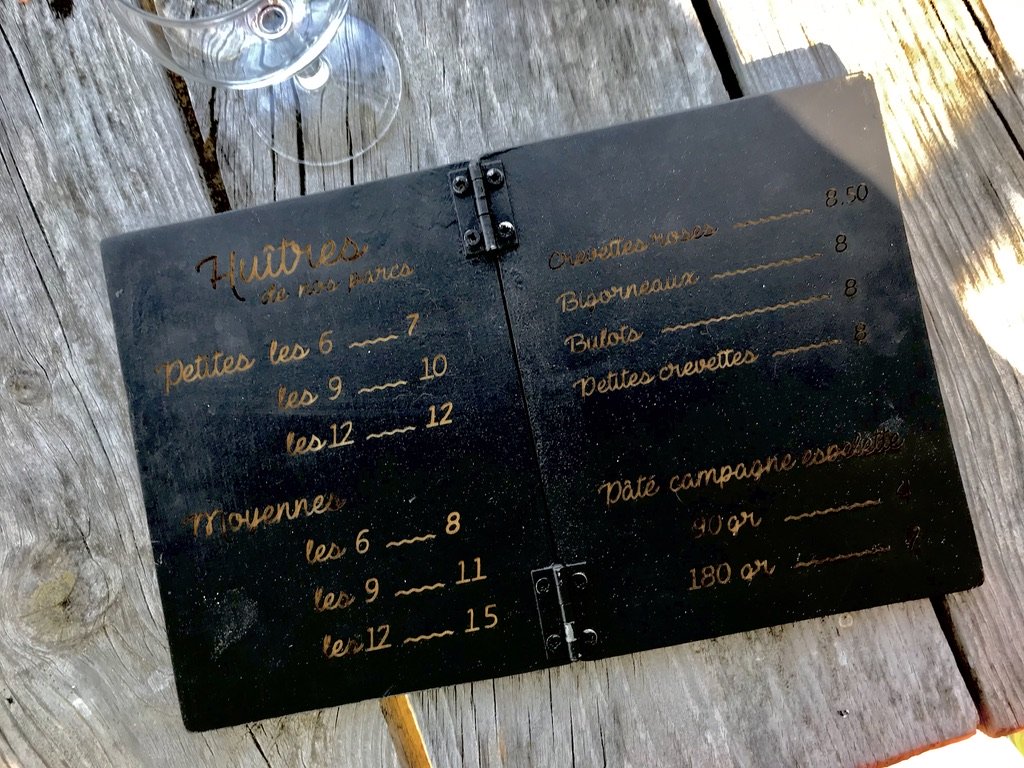 Huîtres
de nos parcs
Petites les 6 7
les 9 10
les 12 12
Moyennes
les 6 8
les 9 11
les 12 15
Crevettes roses 8.50
Bigorneaux 8
Bulots 8
Petites crevettes 8
Pâté campagne espelette
90 gr
180 gr